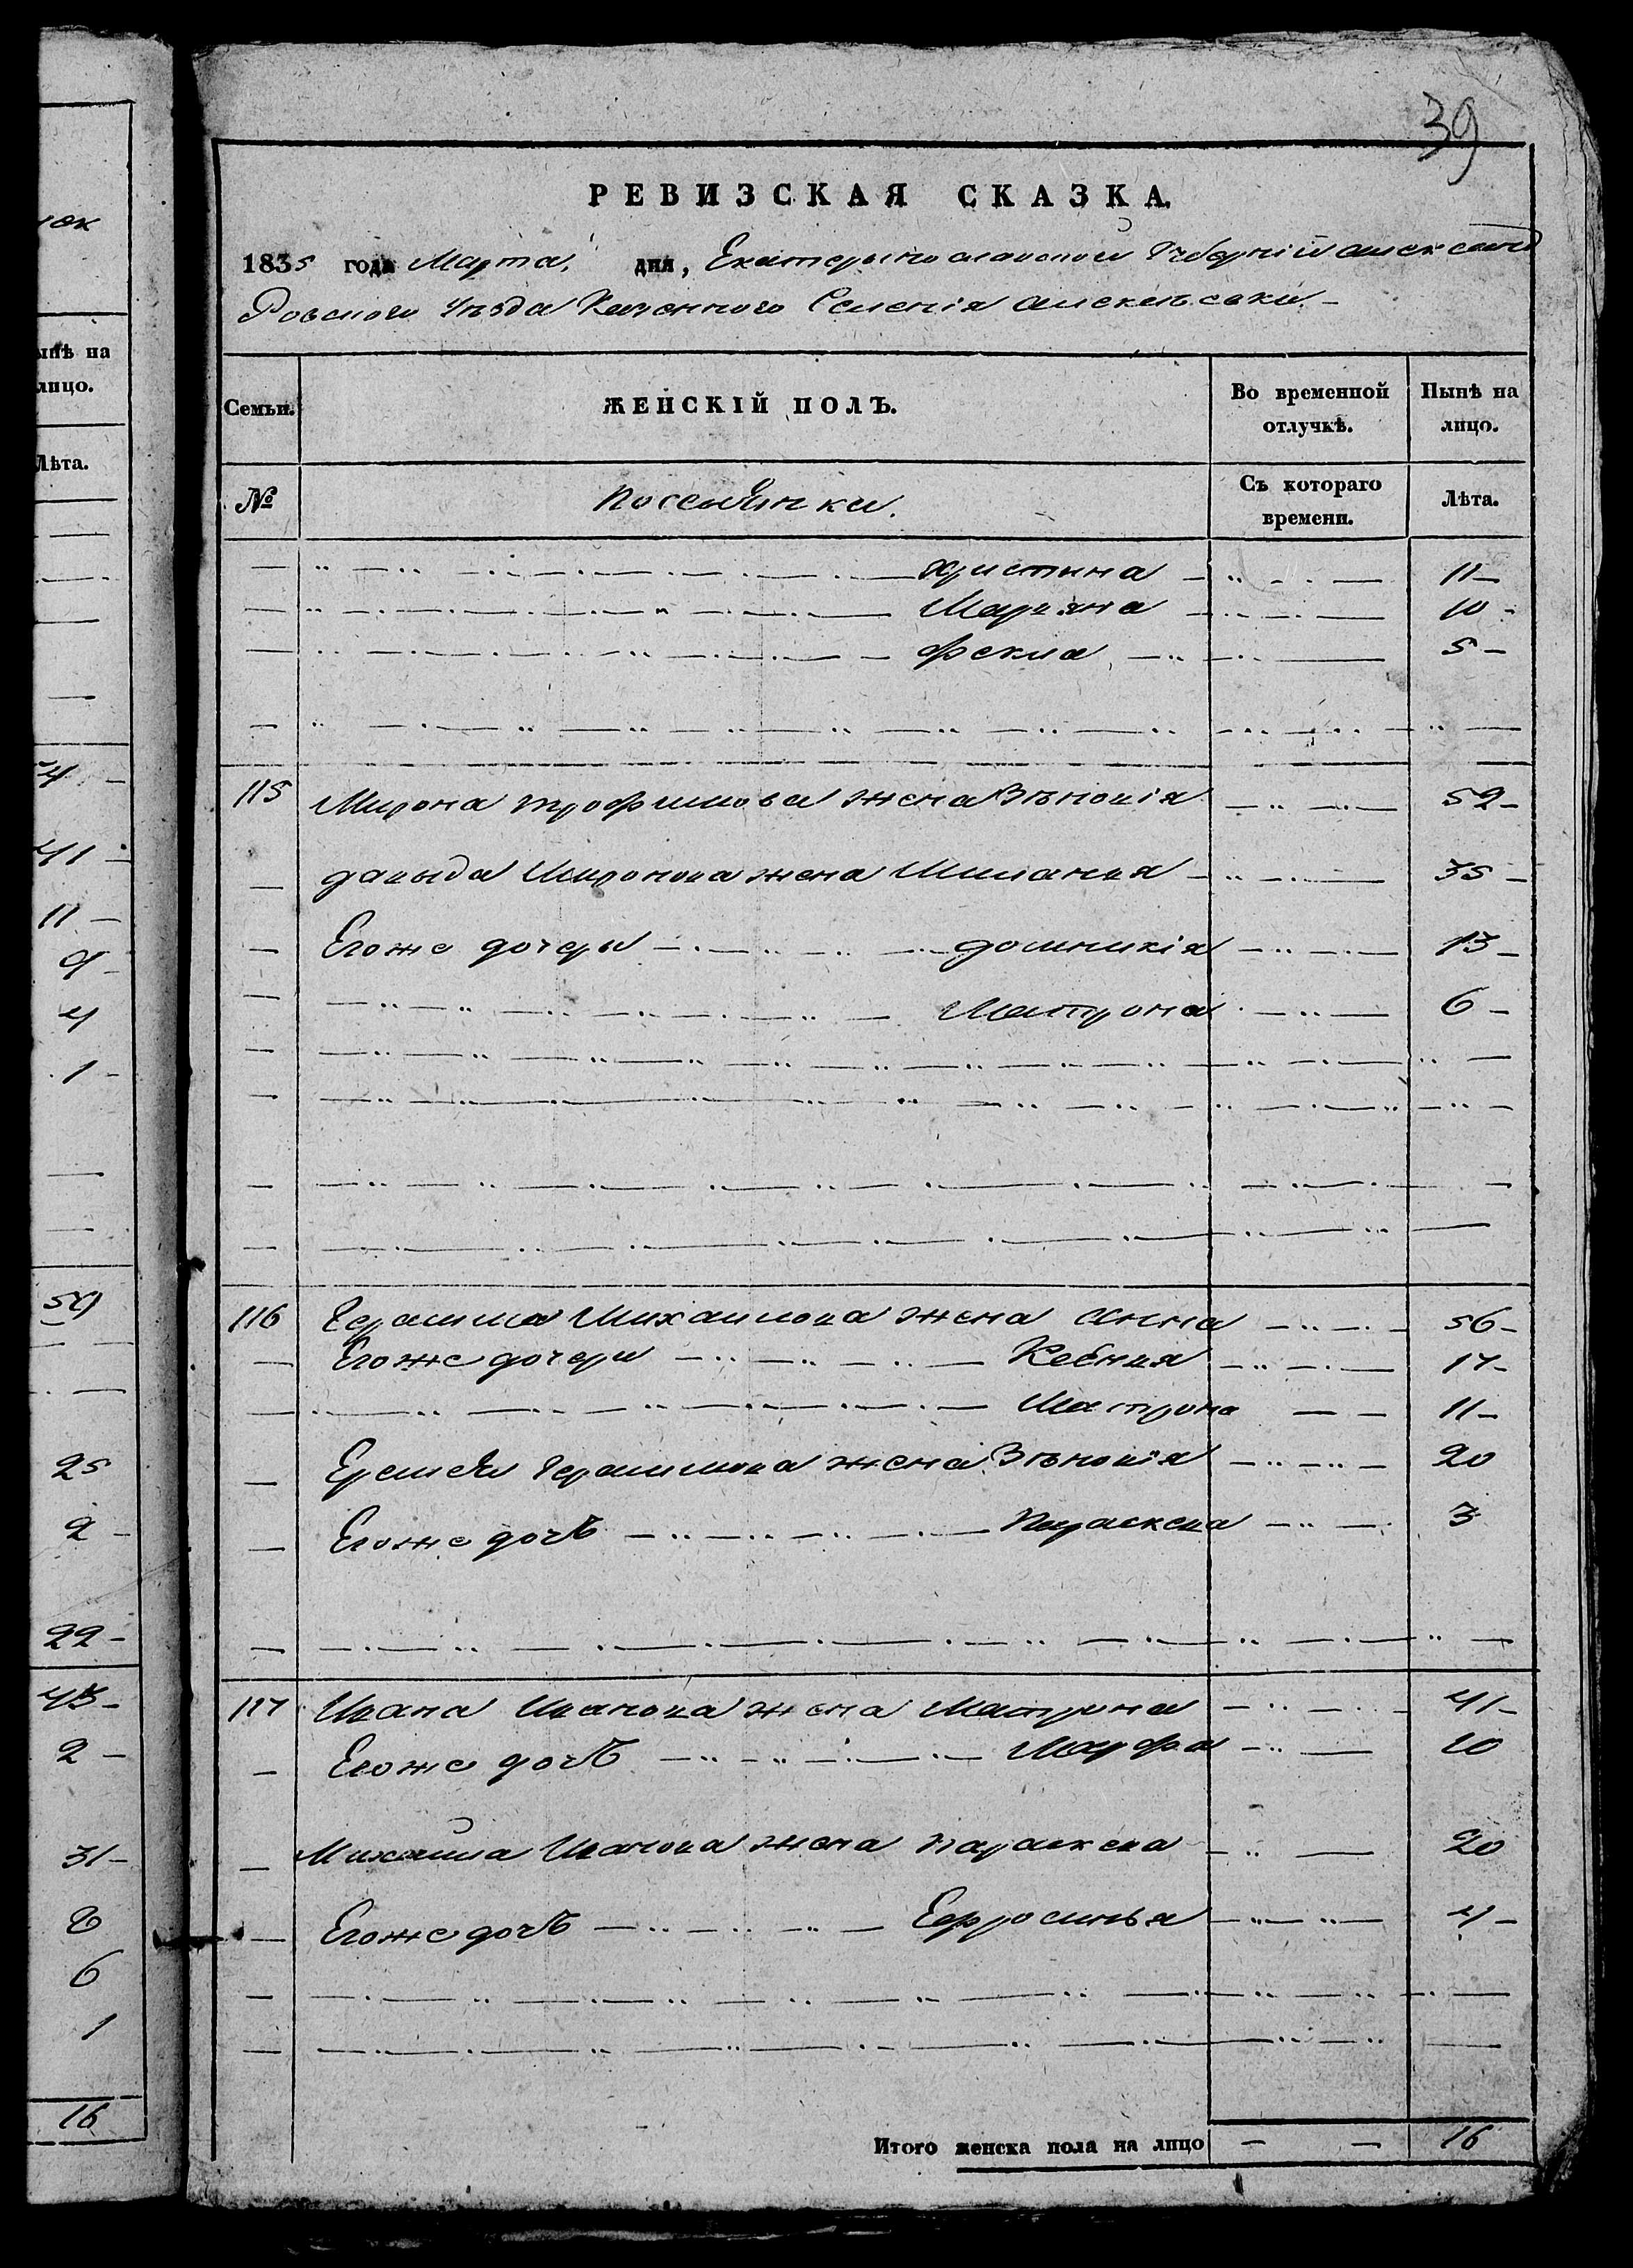 юх
ынѣ на
лицо.
Лѣта.
4 -
41 -
11 -
9 -
4
1 -
59
25
2 -
22 -
43 -
2 -
31 -
8
6
1
16
39
РЕВИЗСКАЯ СКАЗКА.
1835 года Марта, дня, Екатеринославской Губерніи Александ
Ровского Уѣзда Казенного Селенія Алексѣевки -
Семьи. ЖЕНСКІЙ ПОЛЪ. Во временной отлучкѣ. Нынѣ на лицо.
№ Съ котораго времени. Лѣта.
Христина 11 -
Марияна 10 -
Фекла 5 -
115 Мирона Трофимова жена Зѣновія 52 -
Давыда Миронова жена Милания 35 -
Егоже дочеры Домникія 13 -
Матрона 6 -
116 Герасима Михаилова жена Анна 56 -
Егоже дочери Ксения 17 -
Матрона 11 -
Еремея Герасимова жена Зѣновія 20
Егоже дочь Параскева 3
117 Ивана Иванова жена Матрона 41 -
Егоже дочь Марфа 10
Михайла Иванова жена Параскева 20
Егоже дочь Ефросинья 4 -
Итого женска пола на лицо - - 16